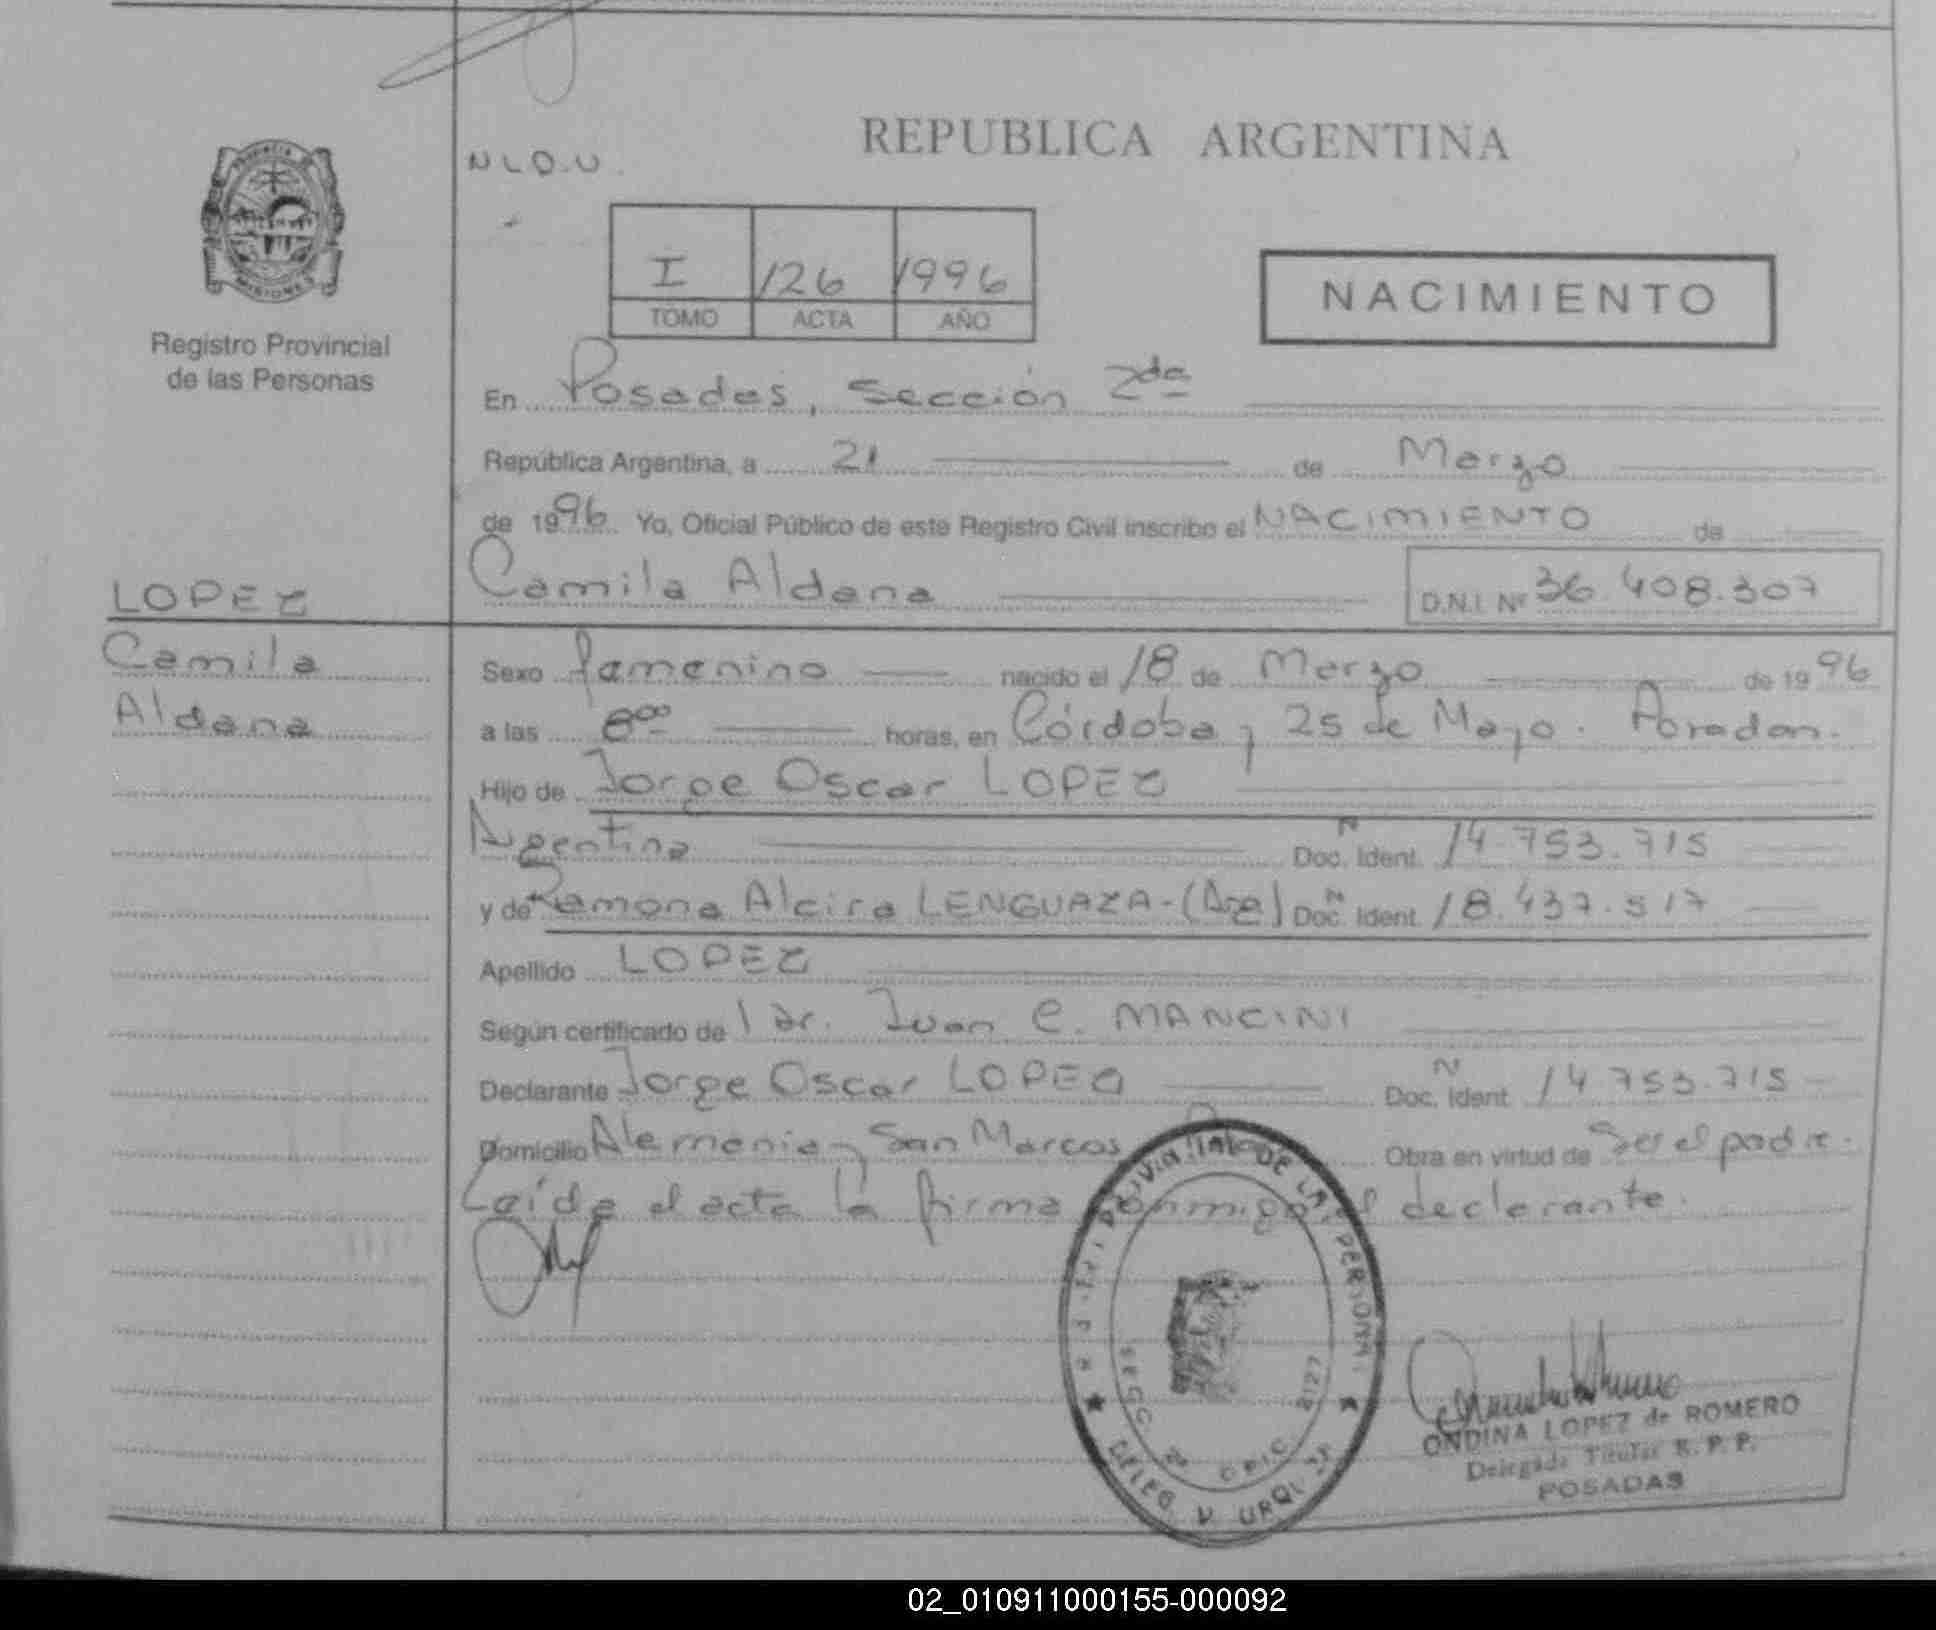 REPUBLICA ARGENTINA
N L D . U .
MISIONES
Registro Provincial
de las Personas
I 126 1996
TOMO ACTA AÑO
NACIMIENTO
En Posadas, Sección 2da
República Argentina, a 21 de Marzo
de 1996 Yo, Oficial Público de este Registro Civil inscribo el NACIMIENTO de
LOPEZ
Camila Aldana D.N.I. Nº 36.408.307
Camila
Aldana
Sexo femenino nacido el 18 de Marzo de 1996
a las 8ºº horas, en Córdoba y 25 de Mayo. Posadas.
Hijo de Jorge Oscar LOPEZ
Argentina Doc. Ident. N 14.753.715
y de Ramona Alcira LENGUAZA-(Arg) Doc. Ident. N 18.437.517
Apellido LOPEZ
Según certificado de Juan C. MANCINI
Declarante Jorge Oscar LOPEZ Doc. Ident. N 14.753.715
Domicilio Alemania y San Marcos Obra en virtud de Ser el padre.
Leída el acta la firma conmigo el declarante.
ONDINA LOPEZ de ROMERO
Delegada Titular R. P. P.
POSADAS
02_010911000155-000092